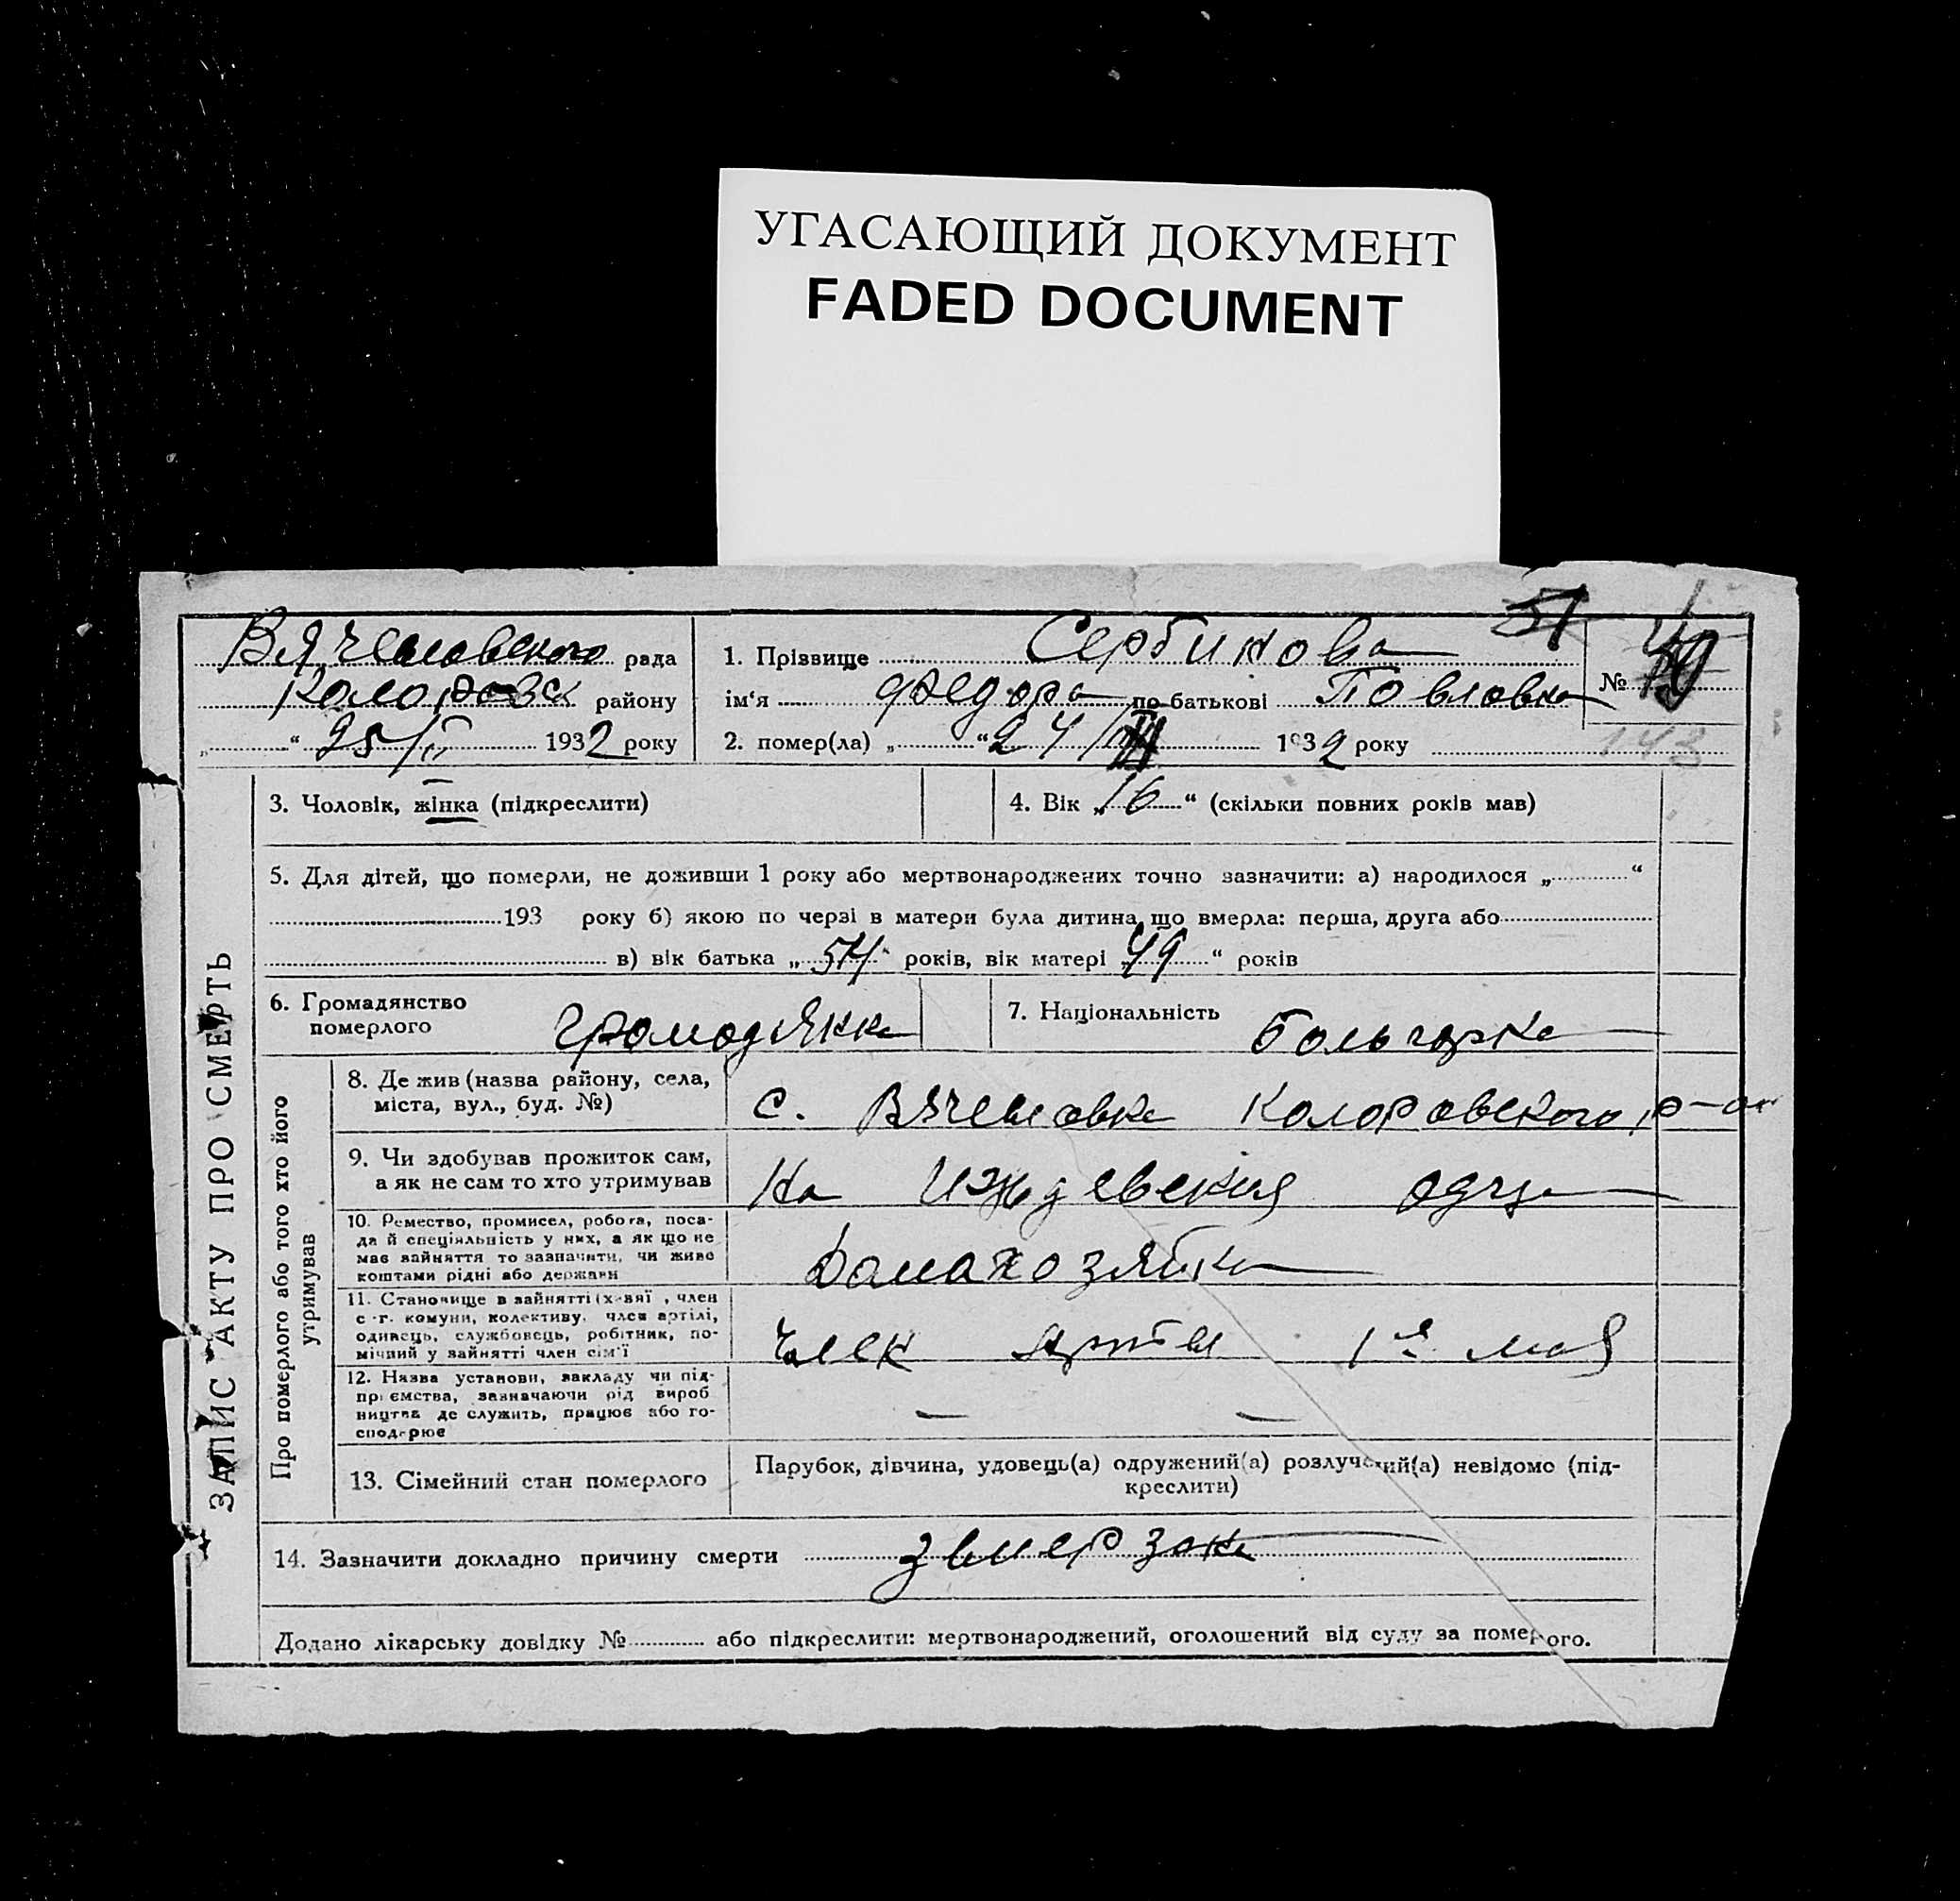 УГАСАЮЩИЙ ДОКУМЕНТ
FADED DOCUMENT
51
Вячеславского рада
Колоровск району
„ “ 25/II 1932 року
1. Прізвище Сербинова
ім‘я Федора по батькові Повловна
№
2. помер(ла) „ “ 24/ 1932 року
143
ЗАПИС АКТУ ПРО СМЕРТЬ
3. Чоловік, жінка (підкреслити)
4. Вік „16“ (скільки повних років мав)
5. Для дітей, що померли, не доживши 1 року або мертвонароджених точно зазначити: а) народилося „ “
193 року б) якою по черзі в матери була дитина, що вмерла: перша, друга або
в) вік батька „54“ років, вік матері „49“ років
6. Громадянство
померлого
громодянка
7. Національність
Больгарка
Про померлого або того хто його
утримував
8. Де жив (назва району, села,
міста, вул., буд. №)
с. Вячеловка Колоровского р-он
9. Чи здобував прожиток сам,
а як не сам то хто утримував
На Иждевения одца
10. Ремество, промисел, робота, поса-
да й спеціяльність у них, а як що не
має зайняття то зазначити, чи живе
коштами рідні або держави
Домахозяйка
11. Становище в зайнятті (х-зяї , член
с -г. комуни, колективу, член артілі,
одинець, службовець, робітник, по-
мічний у зайнятті член сім‘ї
Член Артели 1е мая
12. Назва установи, закладу чи під-
приємства, зазначаючи рід вироб
ництва де служить, працює або го-
сподарює
— —
13. Сімейний стан померлого
Парубок, дівчина, удовець(а) одружений(а) розлучений(а) невідомо (під-
креслити)
14. Зазначити докладно причину смерти
Додано лікарську довідку № або підкреслити: мертвонароджений, оголошений від суду за померлого.